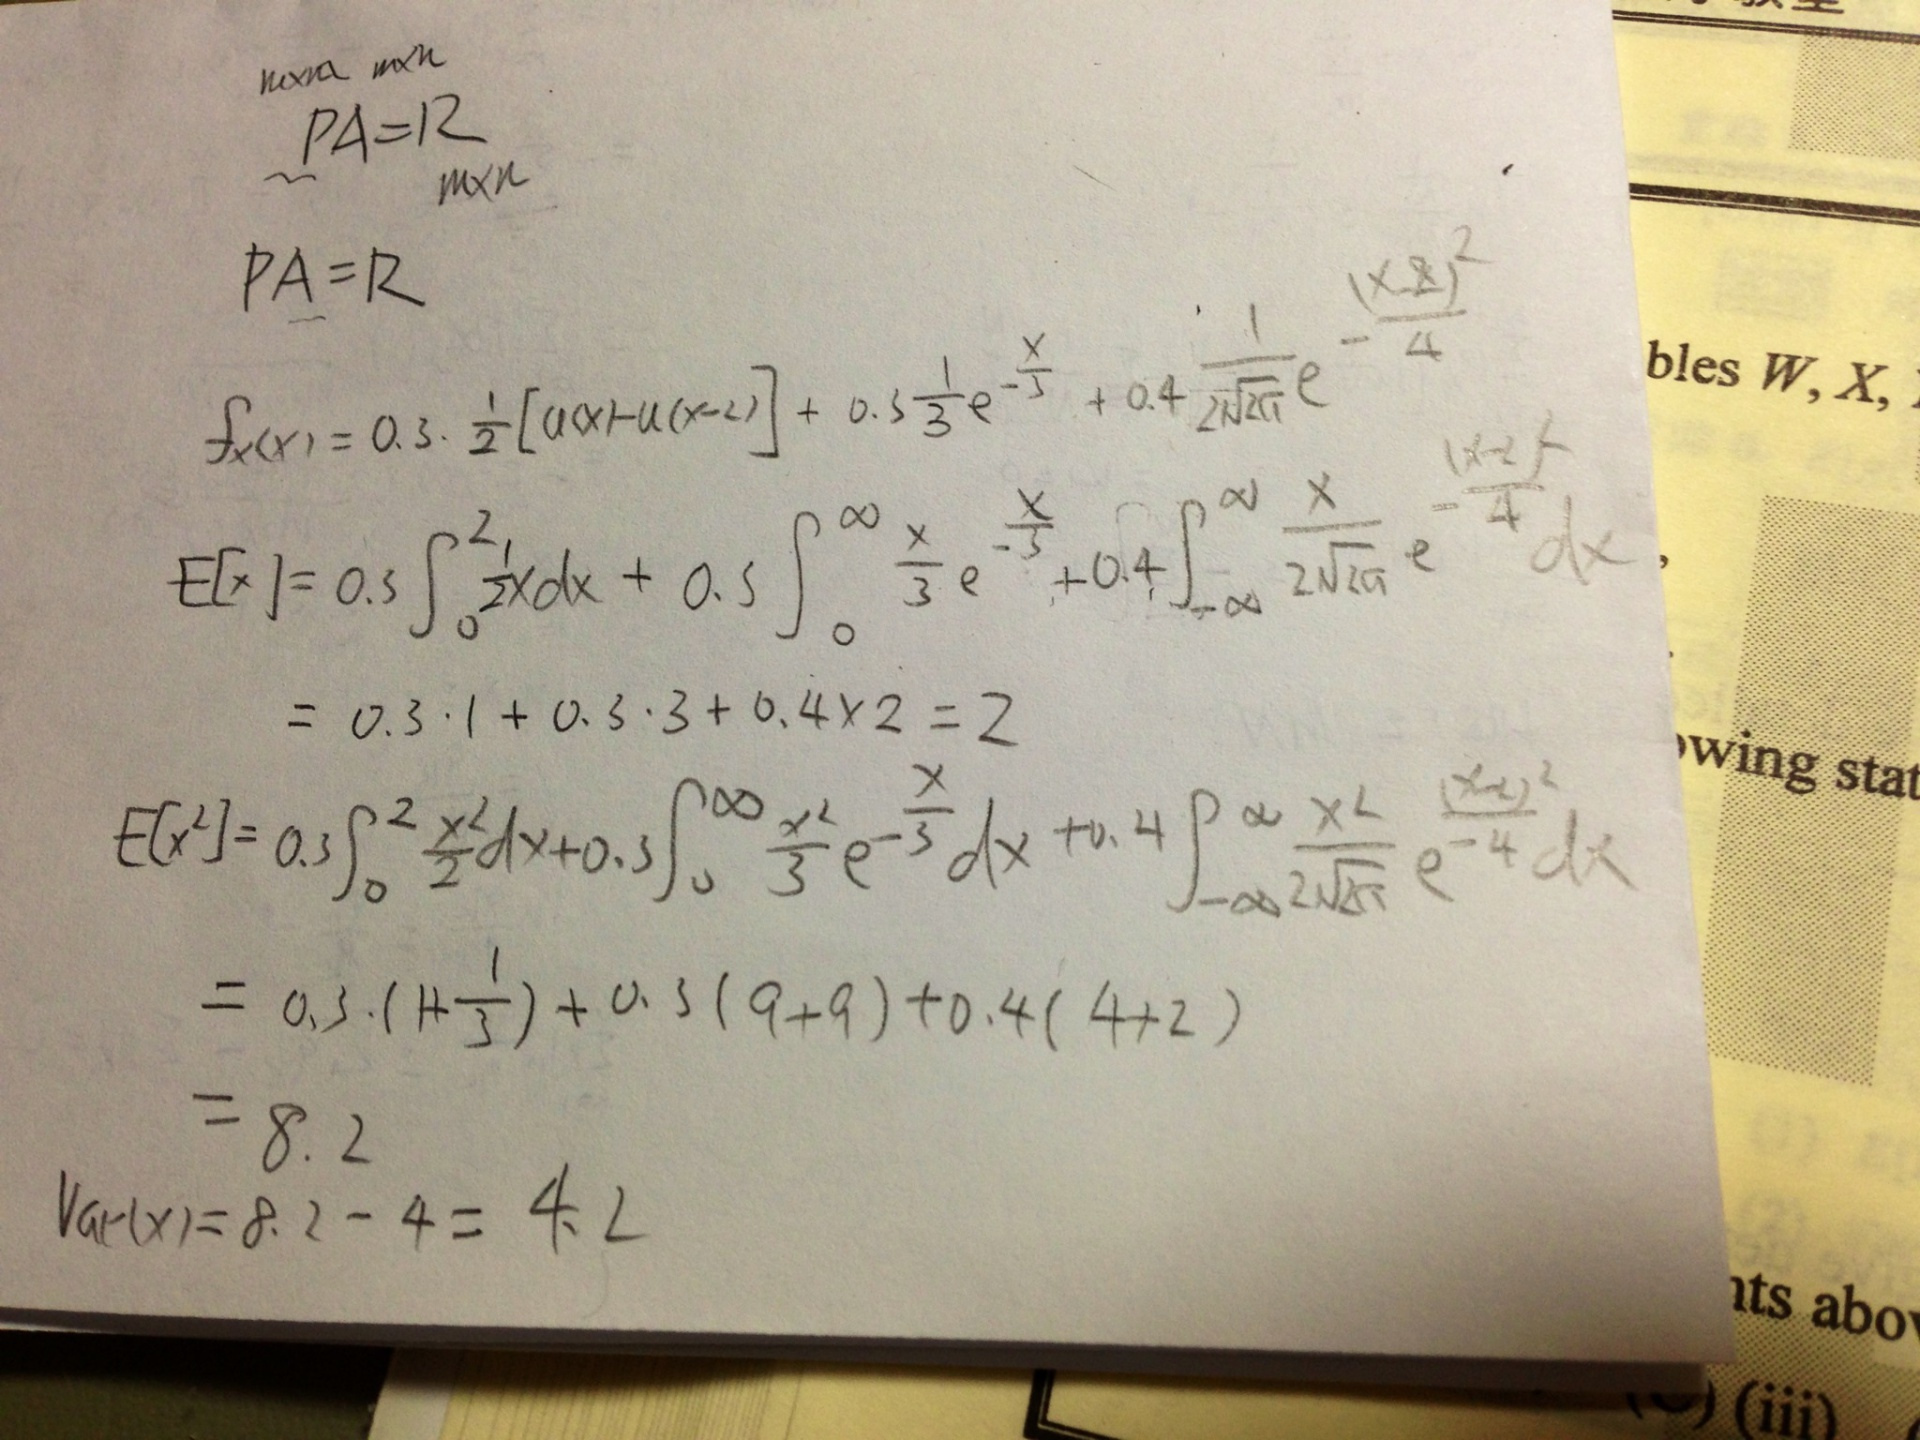 m×m m×n
PA=R
m×n
PA=R
fx(x)=0.3·1/2[u(x)-u(x-2)]+0.3 1/3 e^-x/3+0.4 1/2√2π e^-(x-2)^2/4
E[x]=0.3∫_0^2 1/2 xdx+0.3∫_0^∞ x/3 e^-x/3+0.4∫_-∞^∞ x/2√2π e^-(x-2)^2/4 dx
=0.3·1+0.3·3+0.4×2=2
E[x^2]=0.3∫_0^2 x^2/2 dx+0.3∫_0^∞ x^2/3 e^-x/3 dx+0.4∫_-∞^∞ x^2/2√2π e^-(x-2)^2/4 dx
=0.3·(1+1/3)+0.3(9+9)+0.4(4+2)
=8.2
Var(x)=8.2-4=4.2
bles W, X,
owing stat
nts abov
(iii)